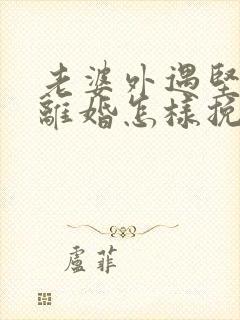 老婆外遇堅
離婚怎樣挽
盧菲